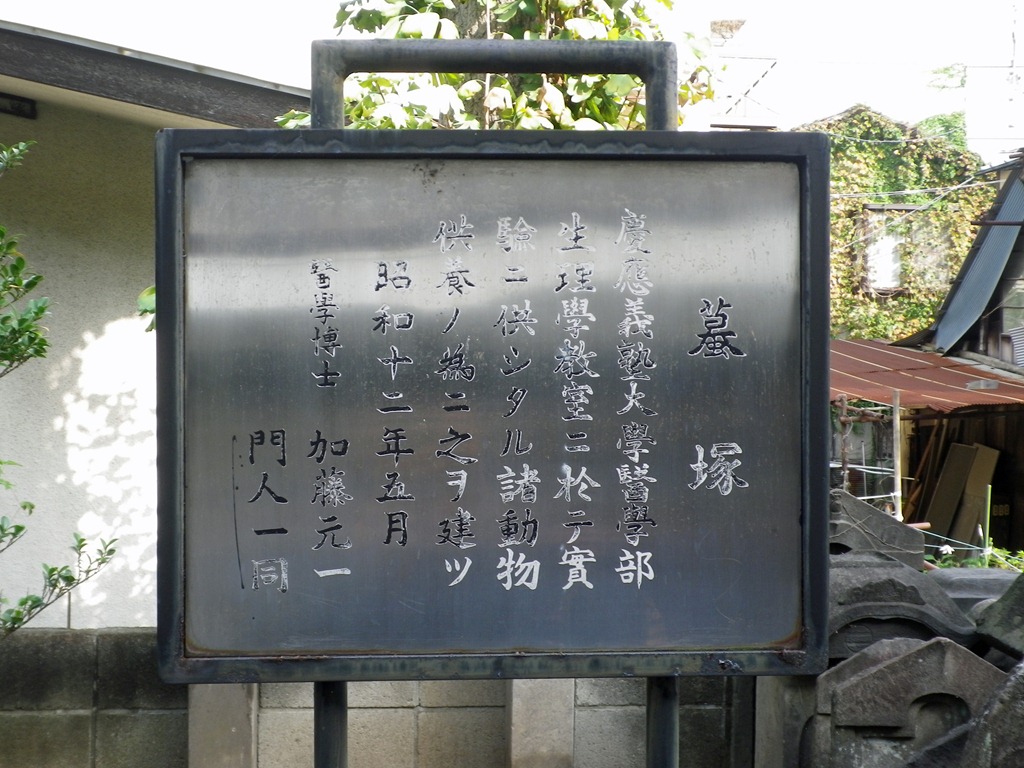 蟇塚
慶應義塾大學醫學部
生理學教室ニ於テ實
験ニ供シタル諸動物
供養ノ為ニ之ヲ建ツ
昭和十二年五月
醫學博士 加藤元一
門人一同